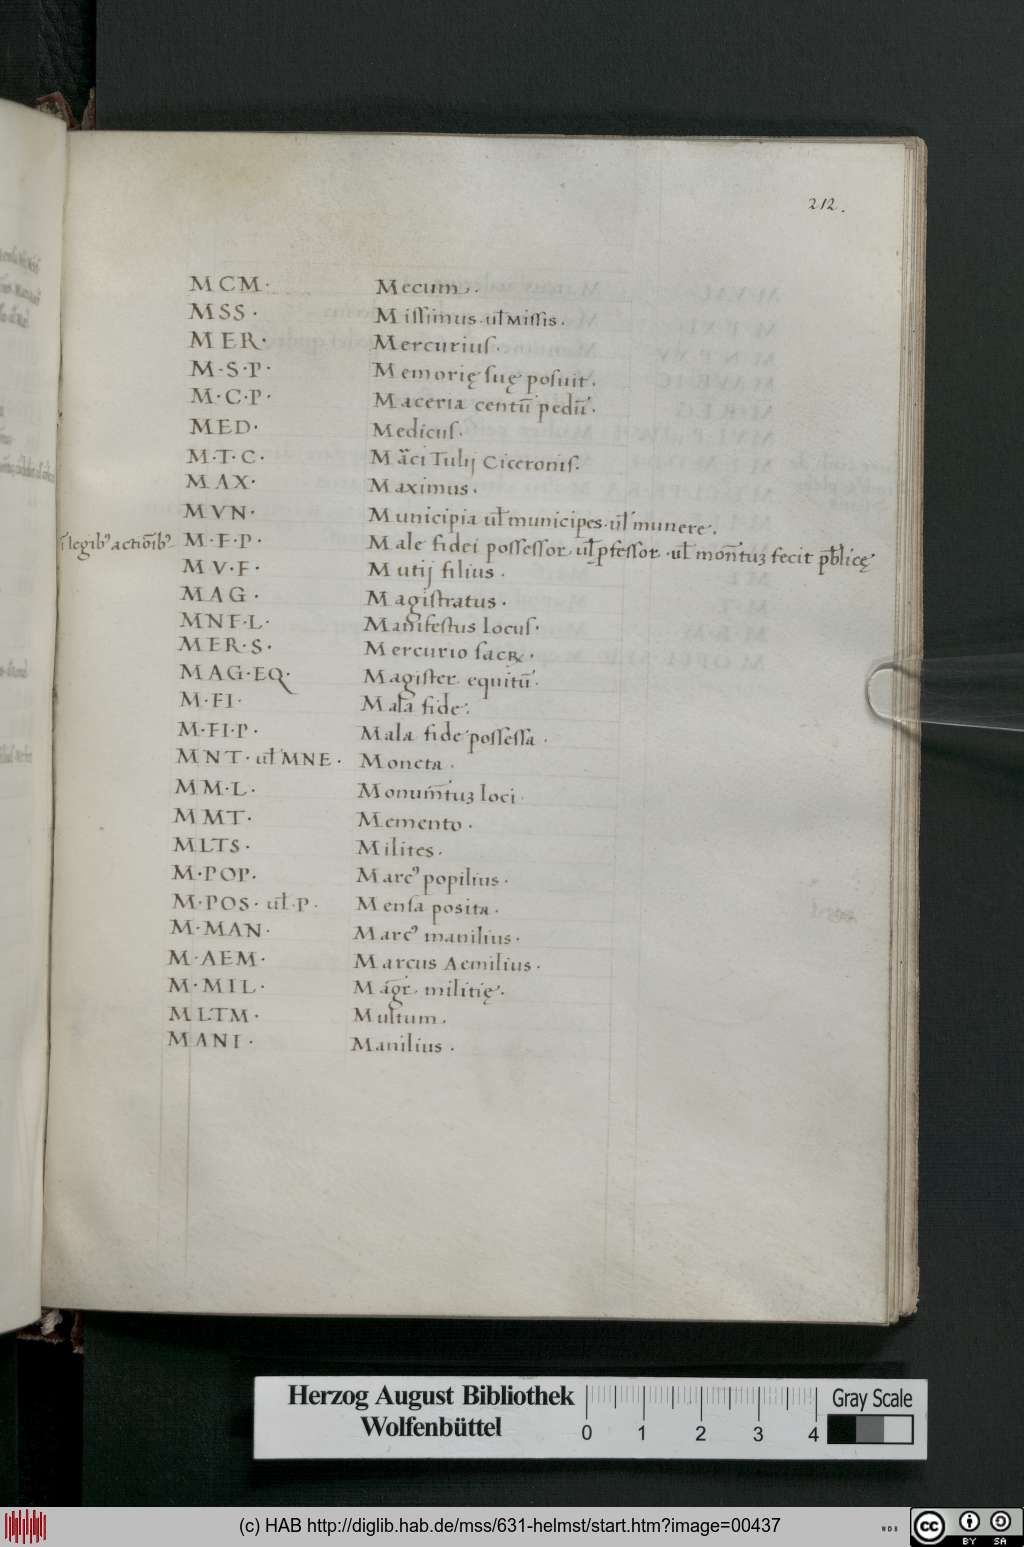 212.
M CM · Mecum ·
M SS · Missimus · ul̄ Missis ·
M ER · Mercurius ·
M · S · P · Memorię suę posuit ·
M · C · P · Maceria centū pedū ·
MED · Medicus ·
M · T · C · Māci Tulij Ciceronis ·
M AX · Maximus ·
M VN · Municipia ul̄ municipes · ul̄ munere ·
ī legibꝰ actiōibꝰ M · F · P · Male fidei possessor ul̄ p̱fessor · ul̄ mon̄tuꝫ fecit pb̄licę
M V · F · Mutij filius ·
M AG · Magistratus ·
M NF · L · Manifestus locus ·
M ER · S · Mercurio sacꝝ ·
M AG · EQ · Magister equitū ·
M · FI · Mala fide ·
M · FI · P · Mala fide possessa ·
M NT · ul̄ MNE · Moneta ·
M M · L · Monum̄tuꝫ loci ·
M MT · Memento ·
MLTS · Milites ·
M · POP · Marcꝰ popilius ·
M · POS · ul̄ · P · Mensa posita ·
M · MAN · Marcꝰ manilius ·
M · AEM · Marcus Aemilius ·
M · MIL · Māgr̄ militię ·
M LTM · Multum ·
M ANI · Manilius ·
Herzog August Bibliothek
Wolfenbüttel
0 1 2 3 4
Gray Scale
(c) HAB http://diglib.hab.de/mss/631-helmst/start.htm?image=00437
WDB
cc BY SA